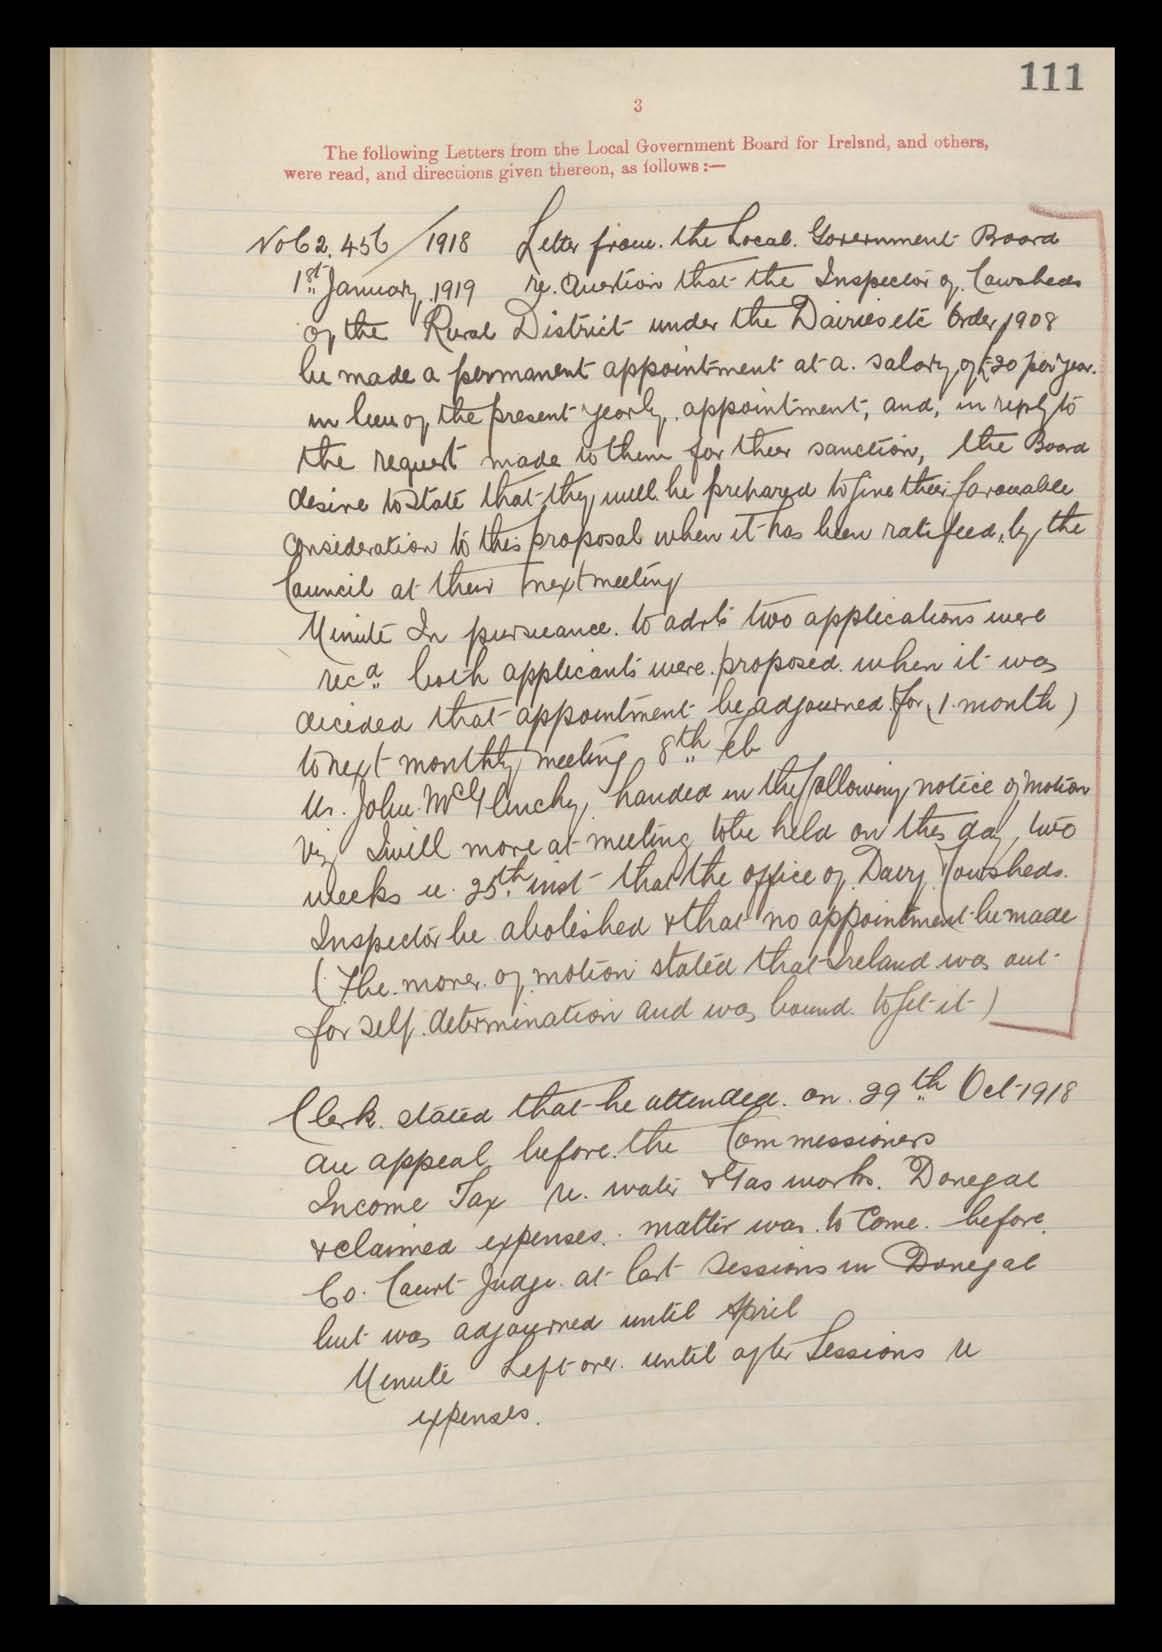 111
3
The following Letters from the Local Government Board for Ireland, and others,
were read, and directions given thereon, as follows :—
No 62,456/1918 Letter from the Local Government Board
1st January 1919 re. Question that the Inspector of Cowsheds
of the Rural District under the Dairies etc Order 1908
be made a permanent appointment at a salary of £20 per year.
in lieu of the present yearly appointment, and, in reply to
the request made to them for their sanction, the Board
desire to state that they will be prepared to give their favourable
consideration to this proposal when it has been ratified, by the
Council at their next meeting
Minute In pursuance to advts two applications were
recd both applicants were proposed when it was
decided that appointment be adjourned (for 1 month)
to next monthly meeting 8th Feb
Mr. John McGlinchy, handed in the following notice of motion
viz I will move at meeting to be held on this day two
weeks ie 25th inst that the office of Dairy Cowsheds
Inspector be abolished & that no appointment be made
(The mover of motion stated that Ireland was out
for self determination and was bound to get it)
Clerk stated that he attended on 29th Oct 1918
an appeal before the Commissioners
Income Tax re. water & Gas works. Donegal
& claimed expenses. matter was to come before
Co. Court Judge at last Sessions in Donegal
but was adjourned until April
Minute Left over until after Sessions re
expenses.